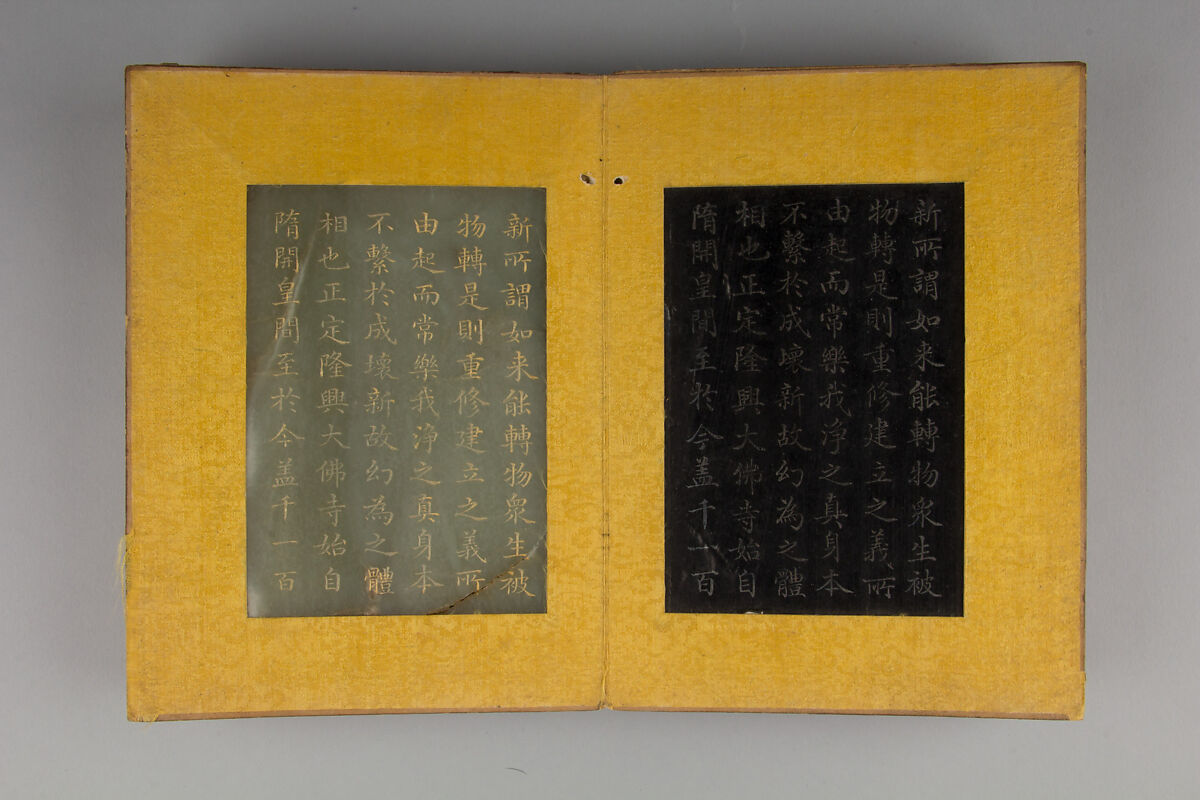 新所謂如来能轉物衆生被
物轉是則重修建立之義所
由起而常樂我淨之真身本
不繫於成壞新故幻為之體
相也正定隆興大佛寺始自
隋開皇間至於今盖千一百
新所謂如来能轉物衆生被
物轉是則重修建立之義所
由起而常樂我淨之真身本
不繫於成壞新故幻為之體
相也正定隆興大佛寺始自
隋開皇間至於今盖千一百